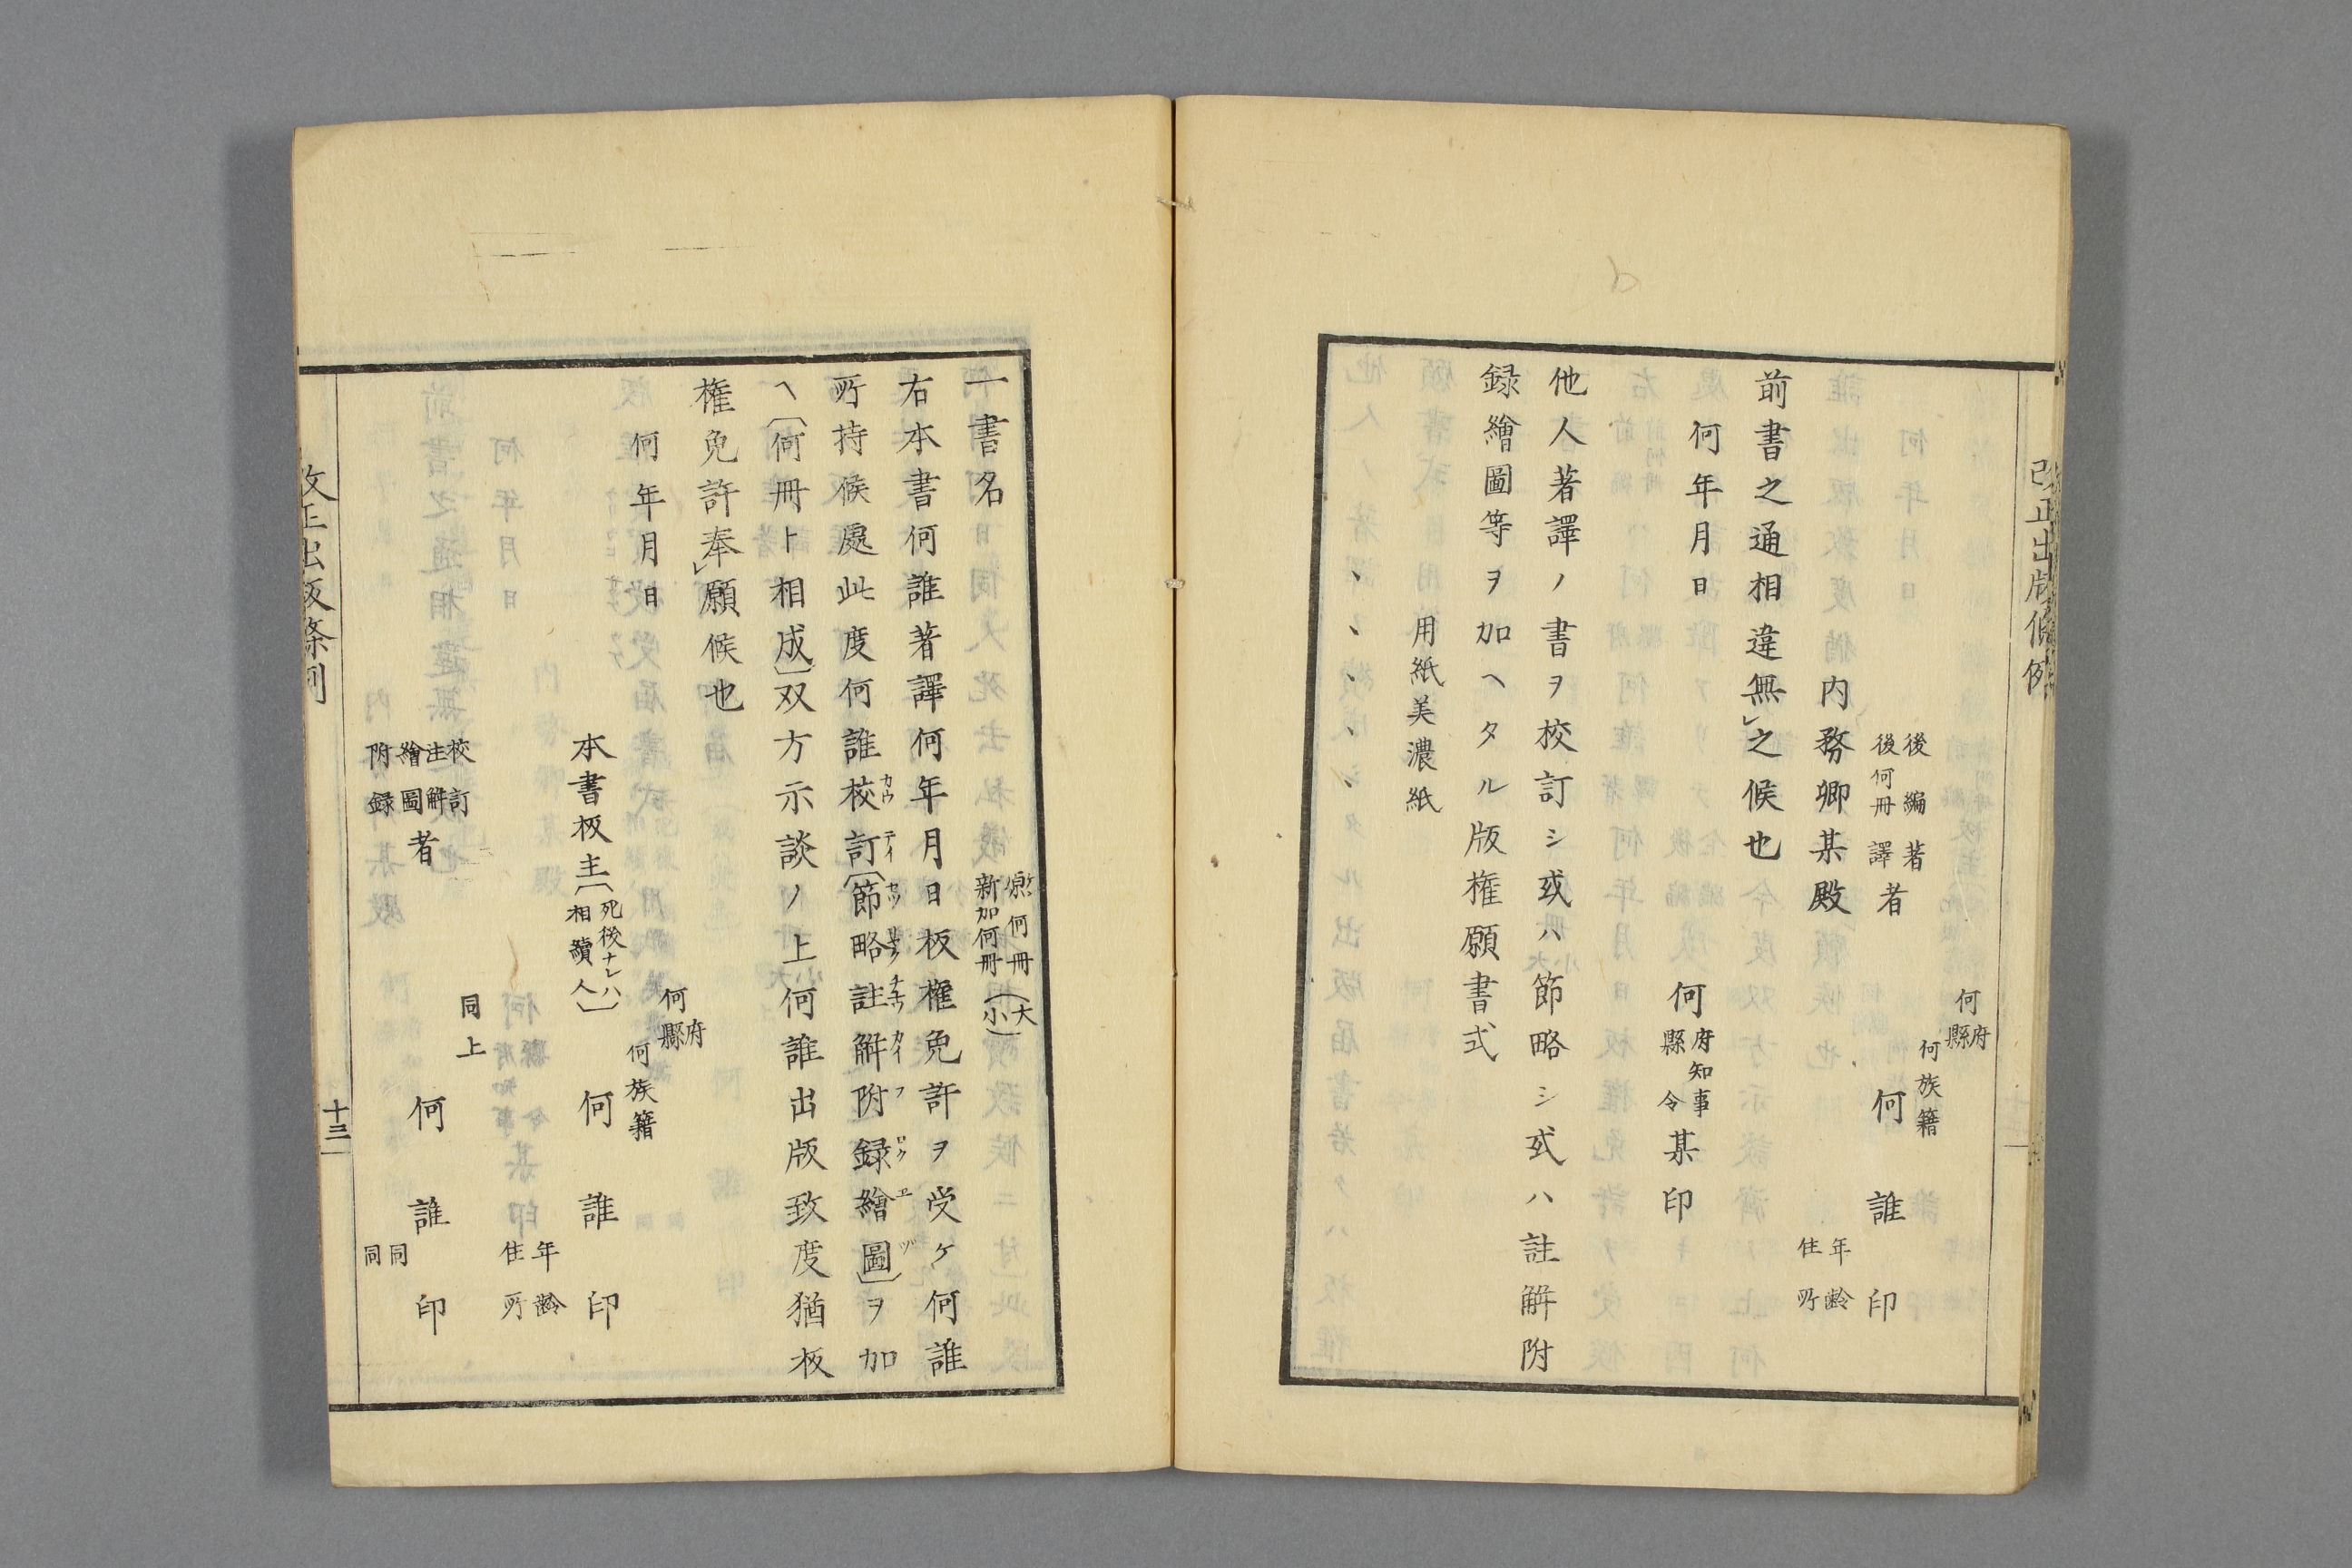 改正出版條例
何府縣
何族籍
後編著
後何冊譯
者
何誰印
年齢
住所
内務卿某殿
前書之通相違無之候也
何年月日
何府知事
縣令
某印
他人著譯ノ書ヲ校訂シ或ハ節略シ或ハ註解附
録繪圖等ヲ加ヘタル版権願書式
用紙美濃紙
一書名
原何冊
新加何冊
(大
小)
右本書何誰著譯何年月日板權免許ヲ受ケ何誰
所持候處此度何誰校訂〔節略註解附録繪圖〕ヲ加
ヘ〔何冊ト相成〕双方示談ノ上何誰出版致度猶板
権免許奉願候也
何年月日
何府縣
何族籍
本書板主〔死後ナレハ
相續人〕
何誰印
年齢
住所
同上
校訂
注解
繪圖
附録
者
何誰印
同
同
改正出版條例
十三